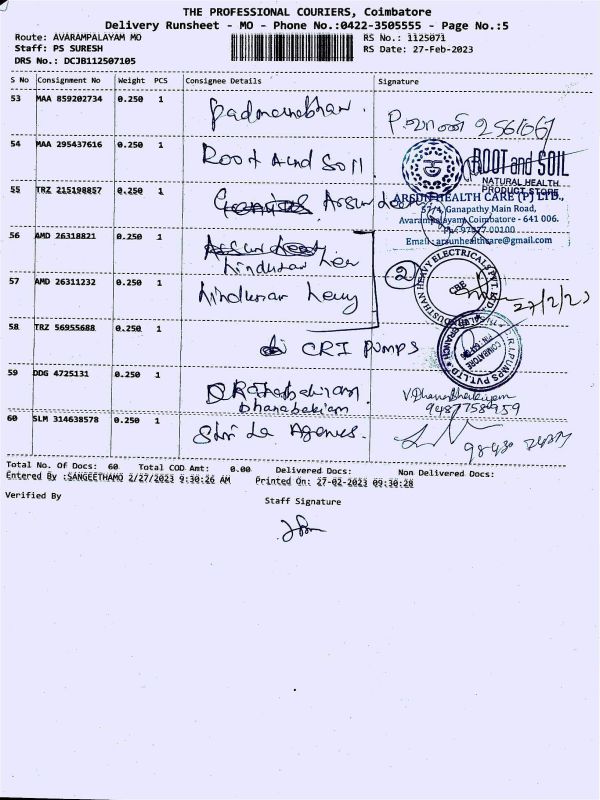 THE PROFESSIONAL COURIERS, Coimbatore
Delivery Runsheet - MO - Phone No.:0422-3505555 - Page No.:5
Route: AVARAMPALAYAM MO RS No.: 1125071
Staff: PS SURESH RS Date: 27-Feb-2023
DRS No.: DCJB112507105
S No Consignment No Weight PCS Consignee Details Signature
53 MAA 859202734 0.250 1 Padmanabhan. P. வாணி 2561061
54 MAA 295437616 0.250 1 Root And Soil ROOT and SOIL
NATURAL HEALTH
PRODUCT STORE
55 TRZ 215198857 0.250 1 Arsun ARSUN HEALTH CARE (P) LTD.,
57/4, Ganapathy Main Road,
Avarampalayam, Coimbatore - 641 006.
Ph: 97877 00100
Email: arsunhealthcare@gmail.com
56 AMD 26318821 0.250 1
2 HEAVY ELECTRICALS PVT. LTD.
CBE
57 AMD 26311232 0.250 1 hindusan heavy 27/2/23
58 TRZ 56955688 0.250 1 CRI PUMPS C.R.I. PUMPS PVT. LTD
COIMBATORE
59 DDG 4725131 0.250 1 Dhanabakiam V. Dhanabhakiyam
9487758959
60 SLM 314638578 0.250 1 Shri La Agencies.
Total No. Of Docs: 60 Total COD Amt: 0.00 Delivered Docs: Non Delivered Docs:
Entered By :SANGEETHAMO 2/27/2023 9:30:26 AM Printed On: 27-02-2023 09:30:28
Verified By Staff Signature